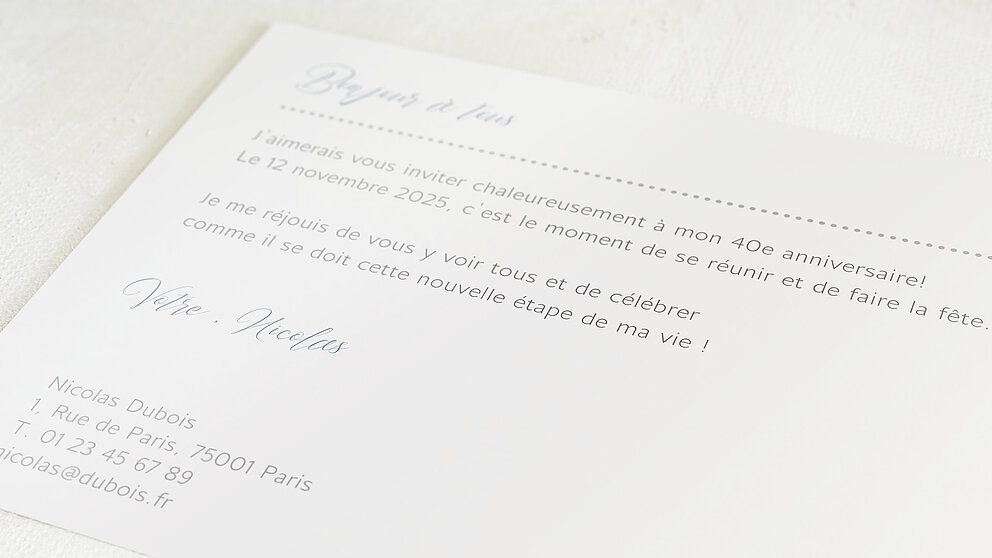 Bonjour à tous
J'aimerais vous inviter chaleureusement à mon 40e anniversaire!
Le 12 novembre 2025, c'est le moment de se réunir et de faire la fête.
Je me réjouis de vous y voir tous et de célébrer
comme il se doit cette nouvelle étape de ma vie !
Votre , Nicolas
Nicolas Dubois
1, Rue de Paris, 75001 Paris
T. 01 23 45 67 89
nicolas@dubois.fr